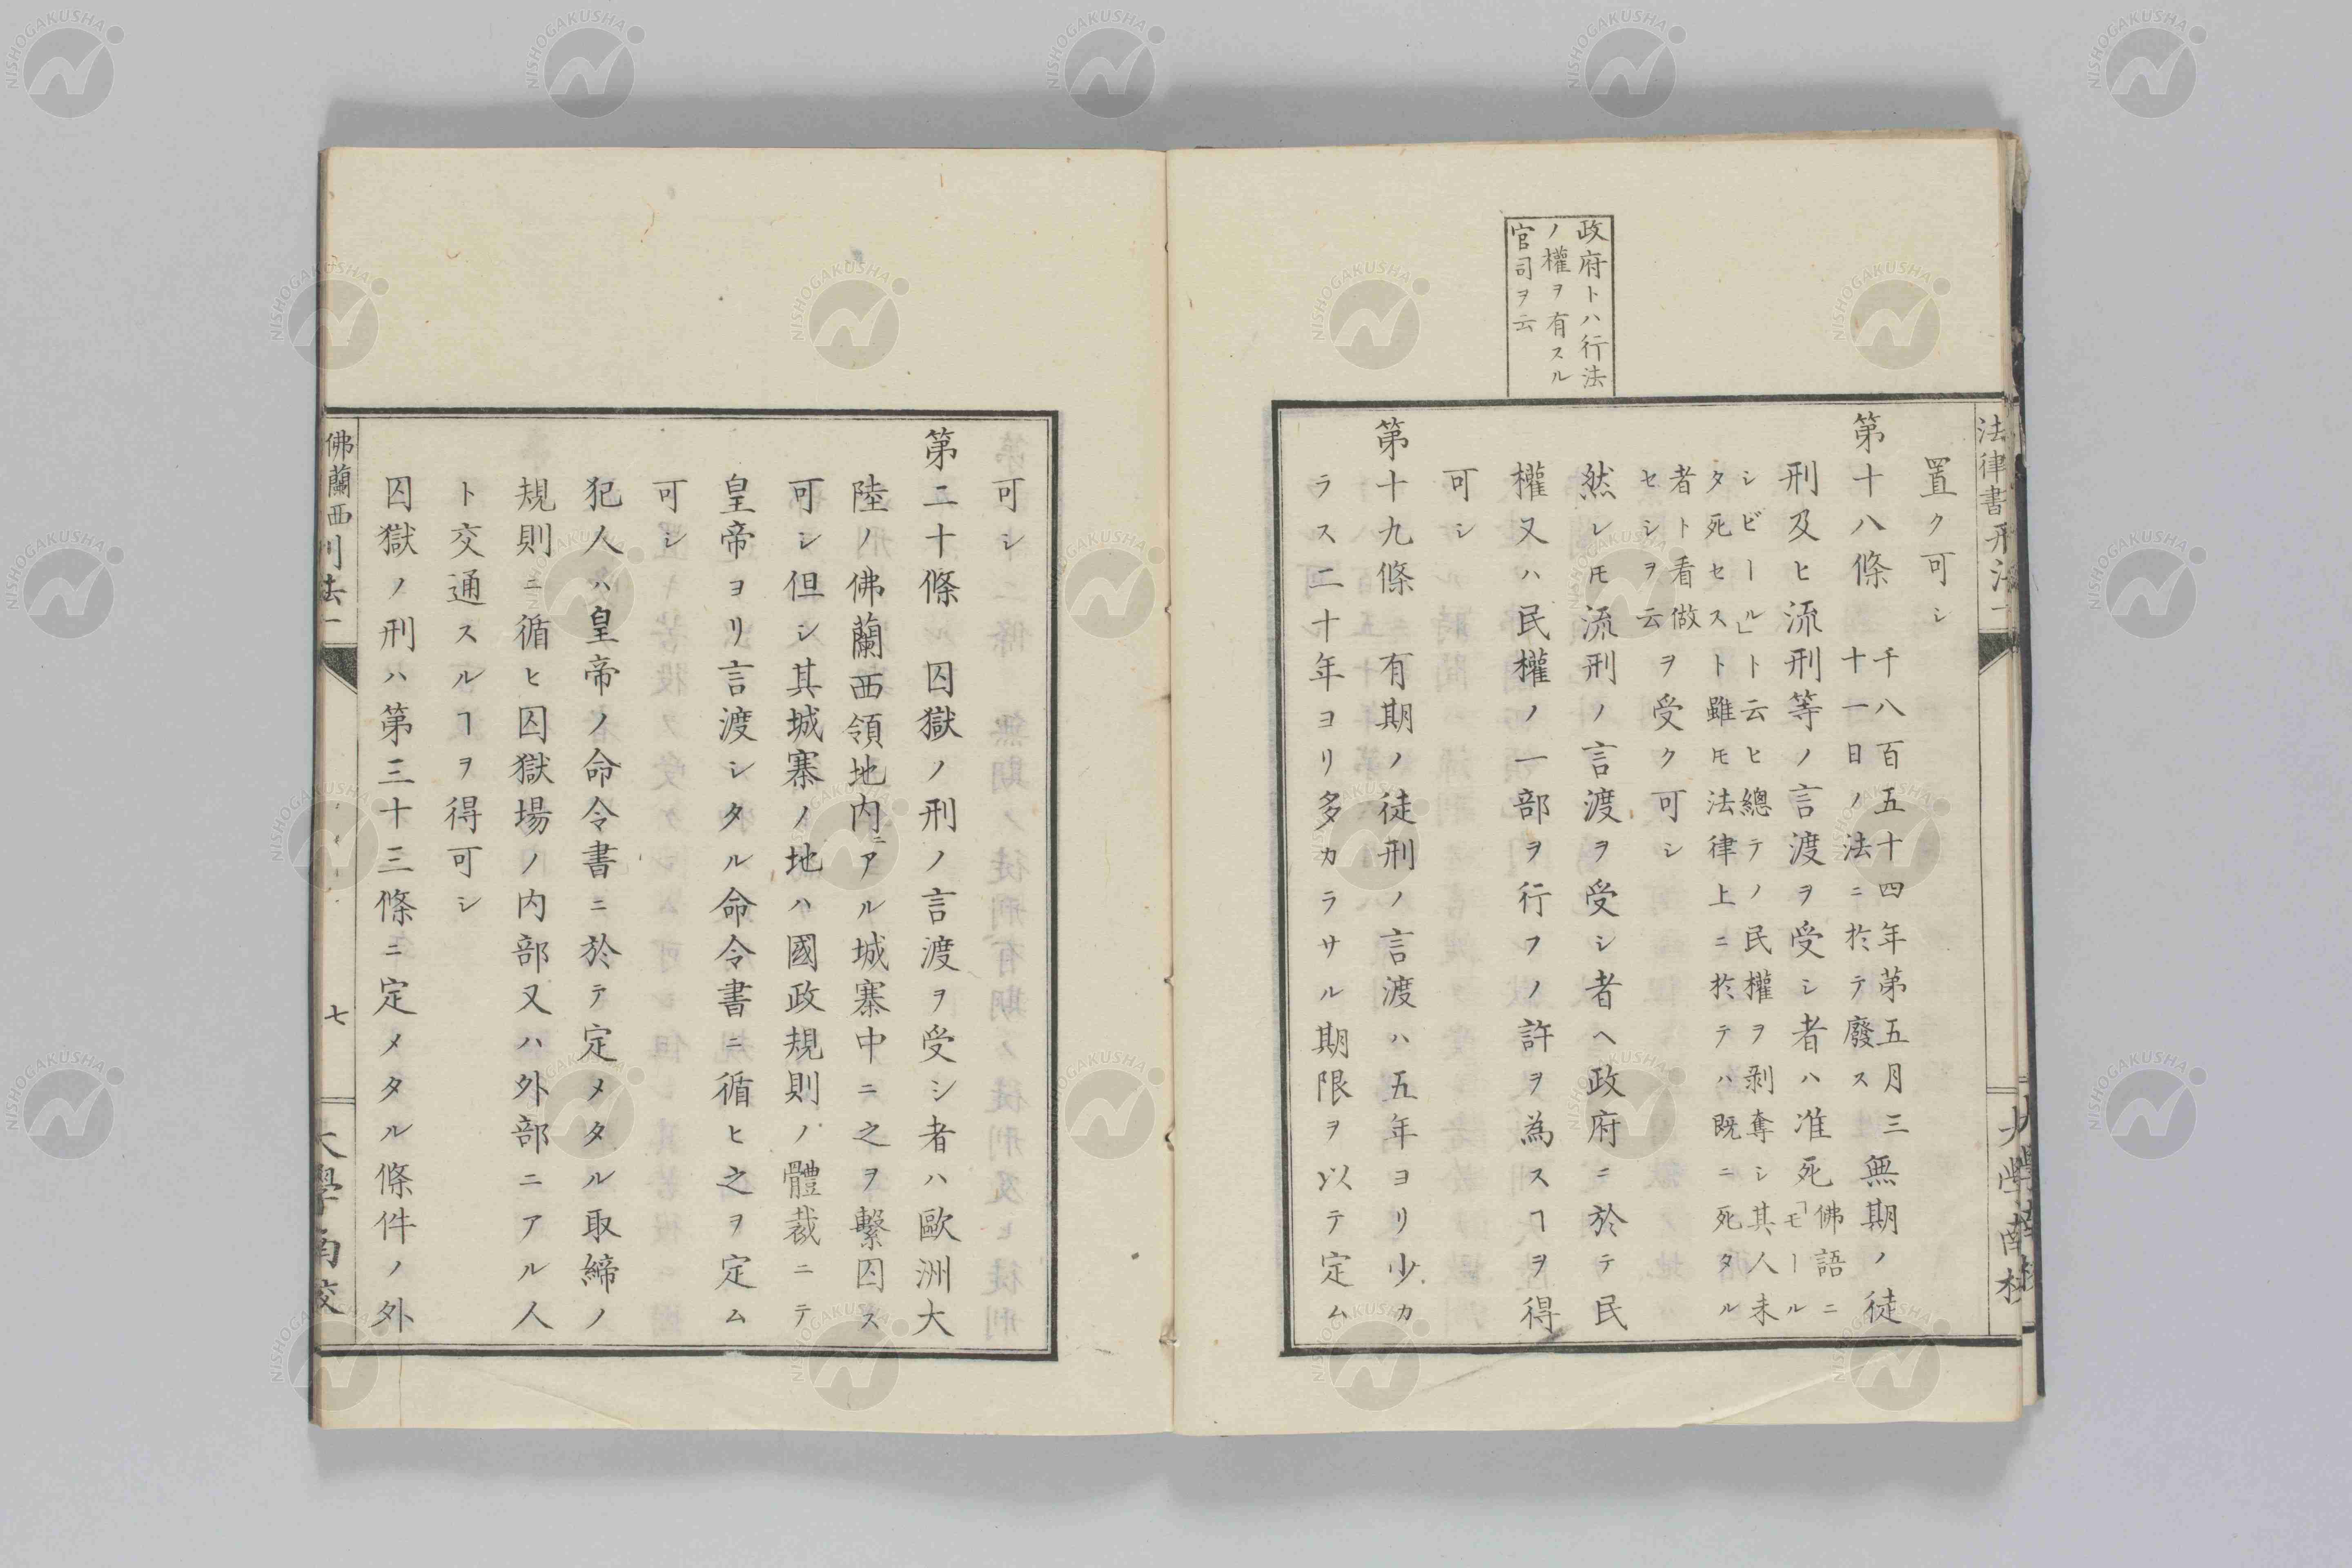 政府トハ行法
ノ權ヲ有スル
官司ヲ云
法律書刑法一
置ク可シ
第十八條 千八百五十四年第五月三
十一日ノ法ニ於テ廢ス
無期ノ徒
刑及ヒ流刑等ノ言渡ヲ受シ者ハ准死
佛語ニ
「モール
シビール」ト云ヒ總テノ民權ヲ剥奪シ其人未
タ死セスト雖モ法律上ニ於テハ既ニ死タル
者ト看做
セシヲ云
ヲ受ク可シ
然レ𪜈流刑ノ言渡ヲ受シ者ヘ政府ニ於テ民
權又ハ民權ノ一部ヲ行フノ許ヲ為スヿヲ得
可シ
第十九條 有期ノ徒刑ノ言渡ハ五年ヨリ少カ
ラス二十年ヨリ多カラサル期限ヲ以テ定ム
可シ
第二十條 囚獄ノ刑ノ言渡ヲ受シ者ハ歐洲大
陸ノ佛蘭西領地内ニアル城寨中ニ之ヲ繫囚ス
可シ但シ其城寨ノ地ハ國政規則ノ體裁ニテ
皇帝ヨリ言渡シタル命令書ニ循ヒ之ヲ定ム
可シ
犯人ハ皇帝ノ命令書ニ於テ定メタル取締ノ
規則ニ循ヒ囚獄場ノ内部又ハ外部ニアル人
ト交通スルヿヲ得可シ
囚獄ノ刑ハ第三十三條ニ定メタル條件ノ外
佛蘭西刑法一
七
大學南校